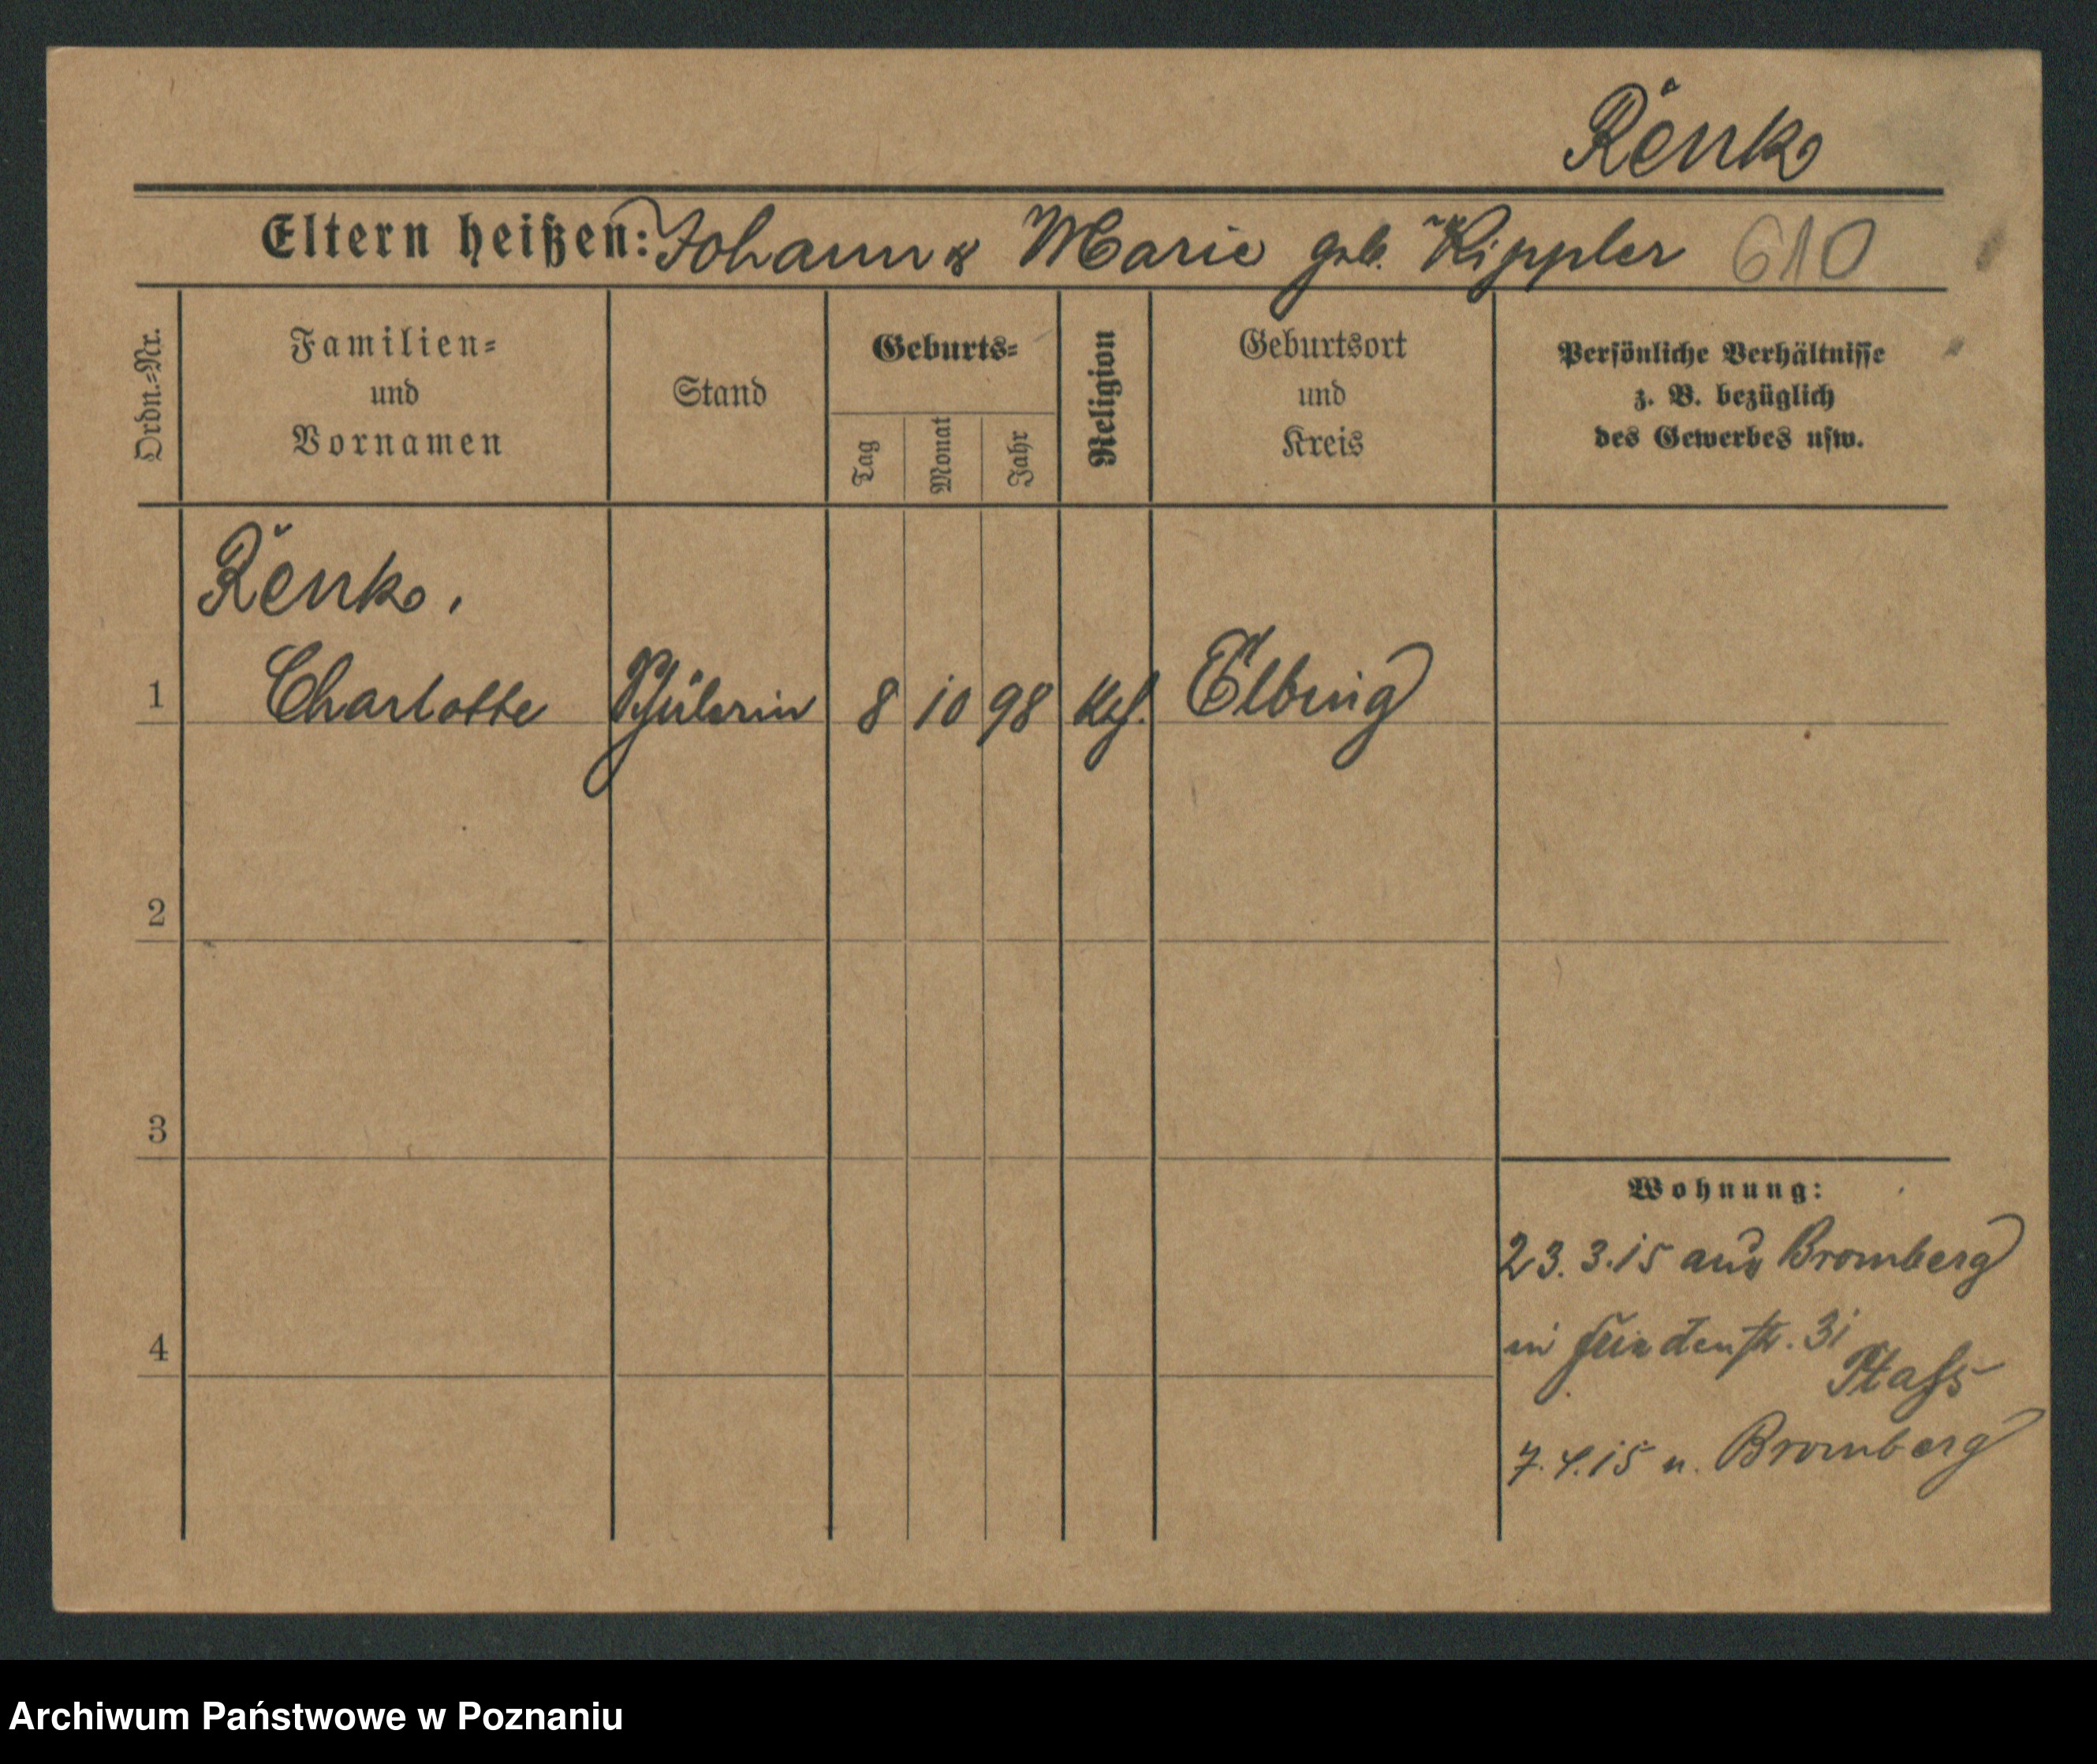 Renk
Eltern heißen: Johann & Marie geb. Kippler 610
Ordn.=Nr.
Familien=
und
Vornamen
Stand
Geburts=
Tag
Monat
Jahr
Religion
Geburtsort
und
Kreis
Persönliche Verhältnisse
z. B. bezüglich
des Gewerbes usw.
Renk.
1 Charlotte Schülerin 8 10 98 Elbing
2
3
4
Wohnung:
23.3.15 aus Bromberg
in Friedenstr. 31
7.4.15 n. Bromberg
Archiwum Państwowe w Poznaniu